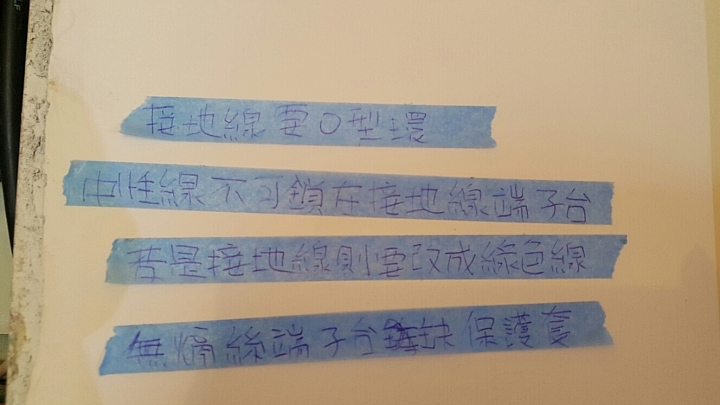 接地線要O型環
中性線不可鎖在接地線端子台
若是接地線則要改成綠色線
無熔絲端子台缺保護套